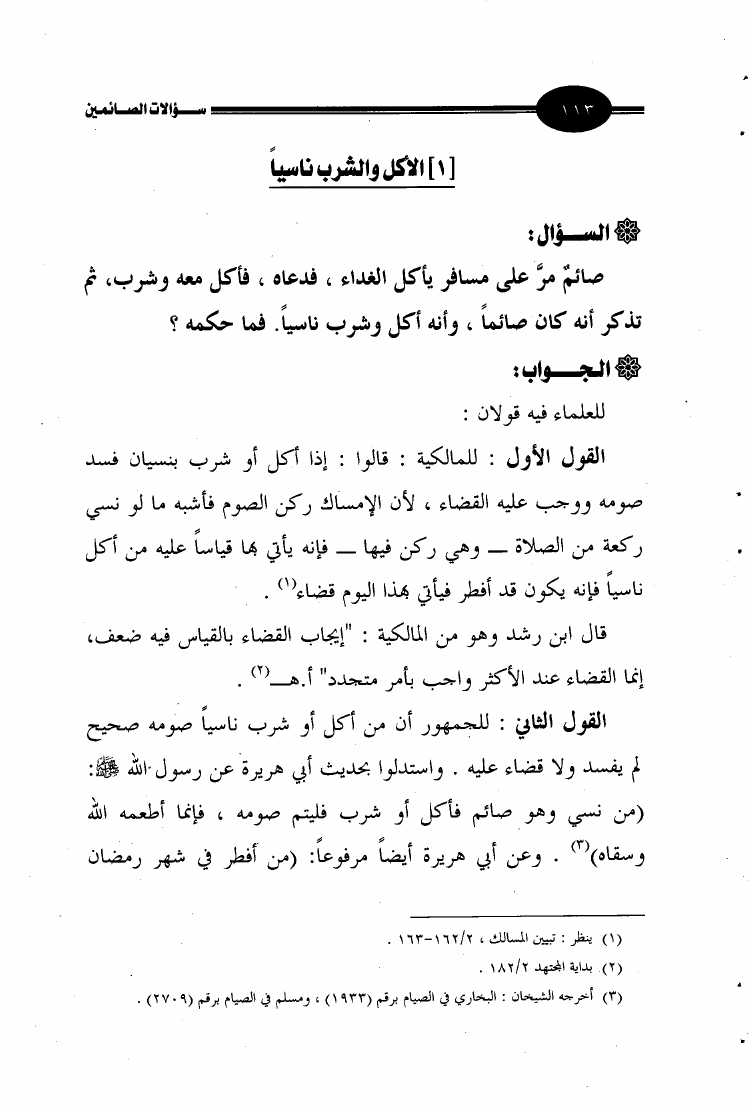 ١١٣ سـؤالات الصـائمـين
[١] الأكل والشرب ناسياً
السـؤال:
صائمٌ مرَّ على مسافر يأكل الغداء ، فدعاه ، فأكل معه وشرب، ثم
تذكر أنه كان صائماً ، وأنه أكل وشرب ناسياً. فما حكمه ؟
الجـواب:
للعلماء فيه قولان :
القول الأول : للمالكية : قالوا : إذا أكل أو شرب بنسيان فسد
صومه ووجب عليه القضاء ، لأن الإمساك ركن الصوم فأشبه ما لو نسي
ركعة من الصلاة ــ وهي ركن فيها ــ فإنه يأتي بها قياساً عليه من أكل
ناسياً فإنه يكون قد أفطر فيأتي بهذا اليوم قضاء(١) .
قال ابن رشد وهو من المالكية : "إيجاب القضاء بالقياس فيه ضعف،
إنما القضاء عند الأكثر واجب بأمر متجدد" أ.هــ(٢) .
القول الثاني : للجمهور أن من أكل أو شرب ناسياً صومه صحيح
لم يفسد ولا قضاء عليه . واستدلوا بحديث أبي هريرة عن رسول الله ﷺ:
(من نسي وهو صائم فأكل أو شرب فليتم صومه ، فإنما أطعمه الله
وسقاه)(٣) . وعن أبي هريرة أيضاً مرفوعاً: (من أفطر في شهر رمضان
(١) ينظر : تبيين المسالك ، ١٦٢/٢-١٦٣ .
(٢) بداية المجتهد ١٨٢/٢ .
(٣) أخرجه الشيخان : البخاري في الصيام برقم (١٩٣٣) ، ومسلم في الصيام برقم (٢٧٠٩) .